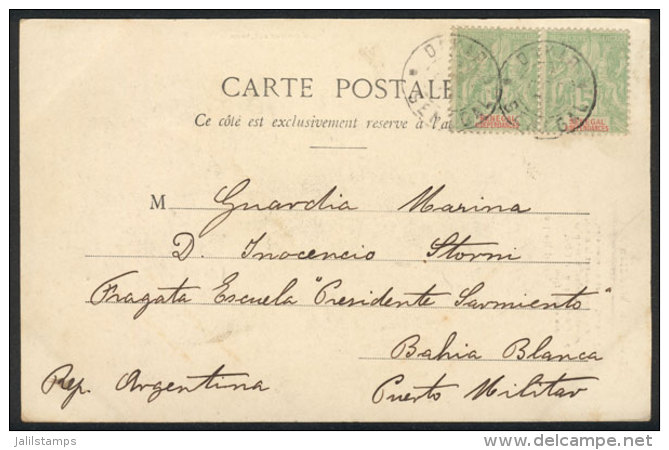 DAKAR
SENEGAL
DAKAR
SENEGAL
5
5
SENEGAL
ET DEPENDANCES
SENEGAL
ET DEPENDANCES
CARTE POSTALE
Ce côté est exclusivement reserve à l'a
M Guardia Marina
D. Inocencio Storni
Fragata Escuela "Presidente Sarmiento"
Bahia Blanca
Rep. Argentina Puerto Militar
jalilstamps
delcampe.net